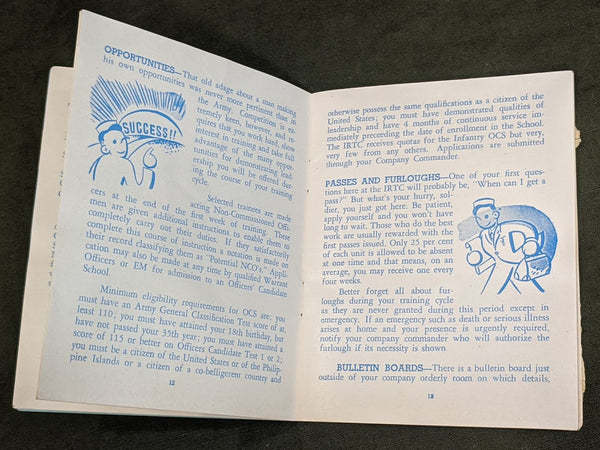 OPPORTUNITIES—That old adage about a man making
his own opportunities was never more pertinent than in
the Army. Competition is ex-
tremely keen, however, and re-
quires that you work hard, show
interest in training and take full
advantage of the many oppor-
tunities for demonstrating lead-
ership you will be offered dur-
ing the course of your training
cycle.
SUCCESS!!
Selected trainees are made
acting Non-Commissioned Offi-
cers at the end of the first week of training. These
men are given additional instructions to enable them to
completely carry out their duties. If they satisfactorily
complete this course of instruction a notation is made on
their record classifying them as "Potential NCO's." Appli-
cation may also be made at any time by qualified Warrant
Officers or EM for admission to an Officers' Candidate
School.
Minimum eligibility requirements for OCS are: you
must have an Army General Classification Test score of at
least 110; you must have attained your 18th birthday, but
have not passed your 35th year; you must have attained a
score of 115 or better on Officers Candidate Test 1 or 2;
you must be a citizen of the United States or of the Philip-
pine Islands or a citizen of a co-belligerent country and
12
otherwise possess the same qualifications as a citizen of the
United States; you must have demonstrated qualities of
leadership and have 4 months of continuous service im-
mediately preceding the date of enrollment in the School.
The IRTC receives quotas for the Infantry OCS but very,
very few from any others. Applications are submitted
through your Company Commander.
PASSES AND FURLOUGHS—One of your first ques-
tions here at the IRTC will probably be, "When can I get a
pass?" But what's your hurry, sol-
dier, you just got here. Be patient,
apply yourself and you won't have
long to wait. Those who do the best
work are usually rewarded with the
first passes issued. Only 25 per cent
of each unit is allowed to be absent
at one time and that means, on an
average, you may receive one every
four weeks.
Better forget all about fur-
loughs during your training cycle
as they are never granted during this period except in
emergency. If an emergency such as death or serious illness
arises at home and your presence is urgently required,
notify your company commander who will authorize the
furlough if its necessity is shown
BULLETIN BOARDS—There is a bulletin board just
outside of your company orderly room on which details,
13